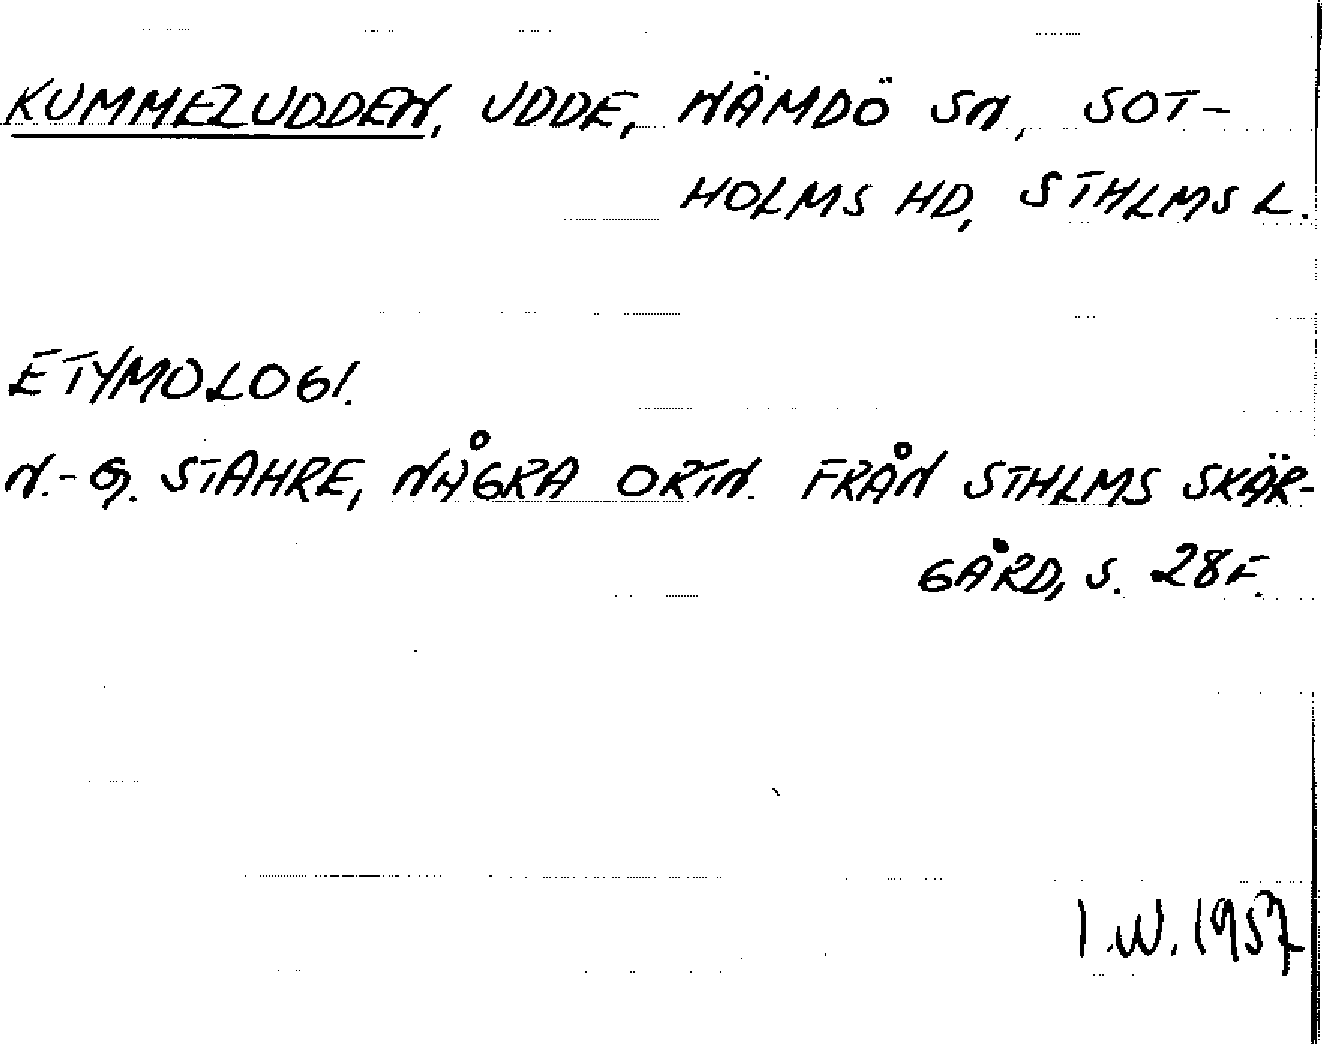 KUMMELUDDEN, UDDE, NÄMDÖ SN, SOT-
HOLMS HD, STHLMS L.
ETYMOLOGI.
N.-G. STAHRE, NÅGRA ORTN. FRÅN STHLMS SKÄR-
GÅRD, S. 28 F.
I.W. 1957